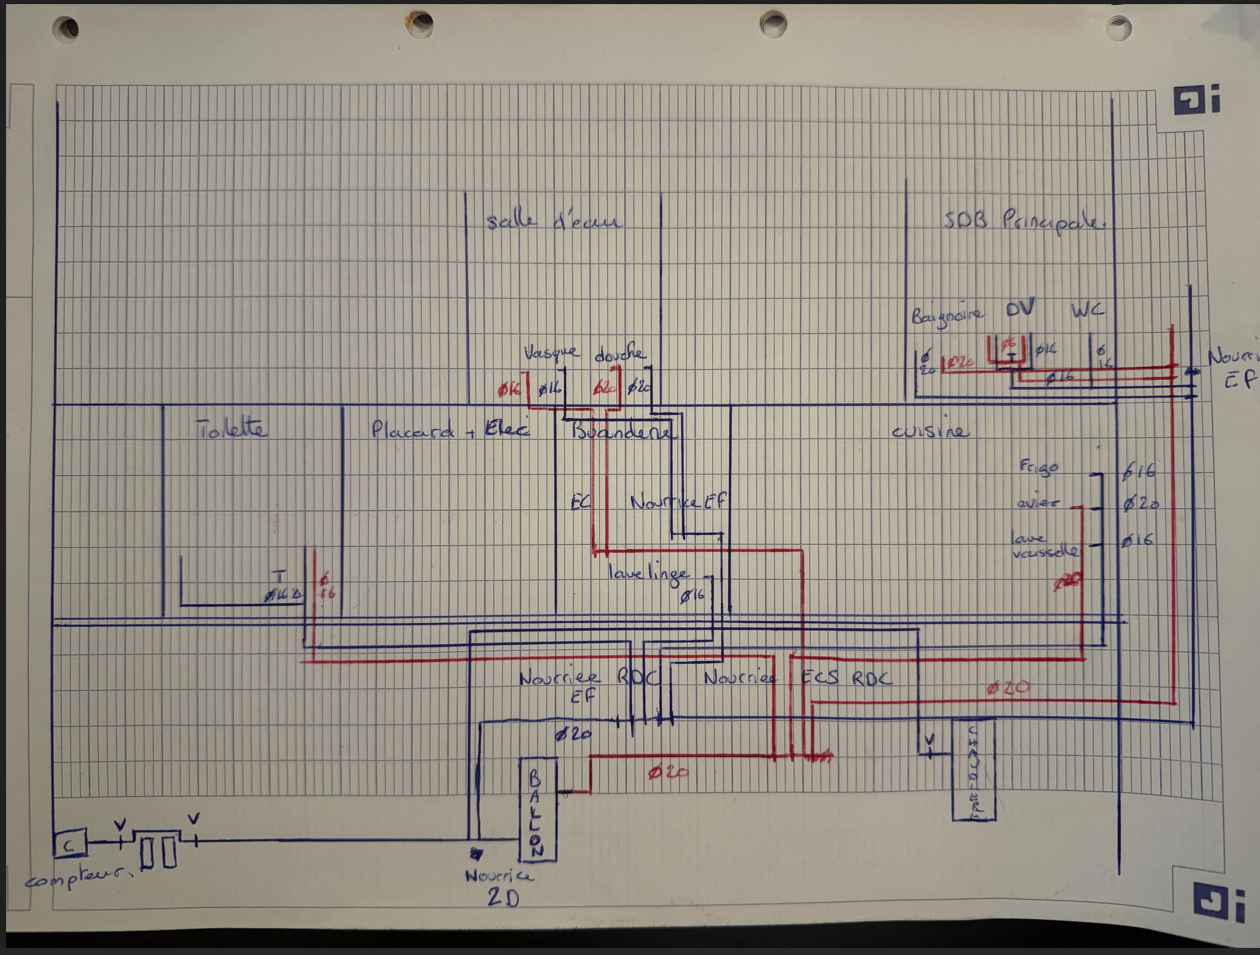 salle d'eau
SDB Principale.
Baignoire DV WC
Vasque douche
Ø16 Ø16 Ø20 Ø20
Ø
20
Ø20
Ø16
T
Ø16
Ø16
Ø
16
EF
Toilette
Placard + Elec
Buanderie
cuisine
Frigo Ø16
evier Ø20
lave
vaisselle
Ø16
EC
Nourrice EF
lave linge
Ø16
T
Ø16
Ø
16
Ø20
Nourrice RDC
EF
Nourrice ECS RDC
Ø20
Ø20
Ø20
V
BALLON
V
V
C
compteur.
Nourrice
2D